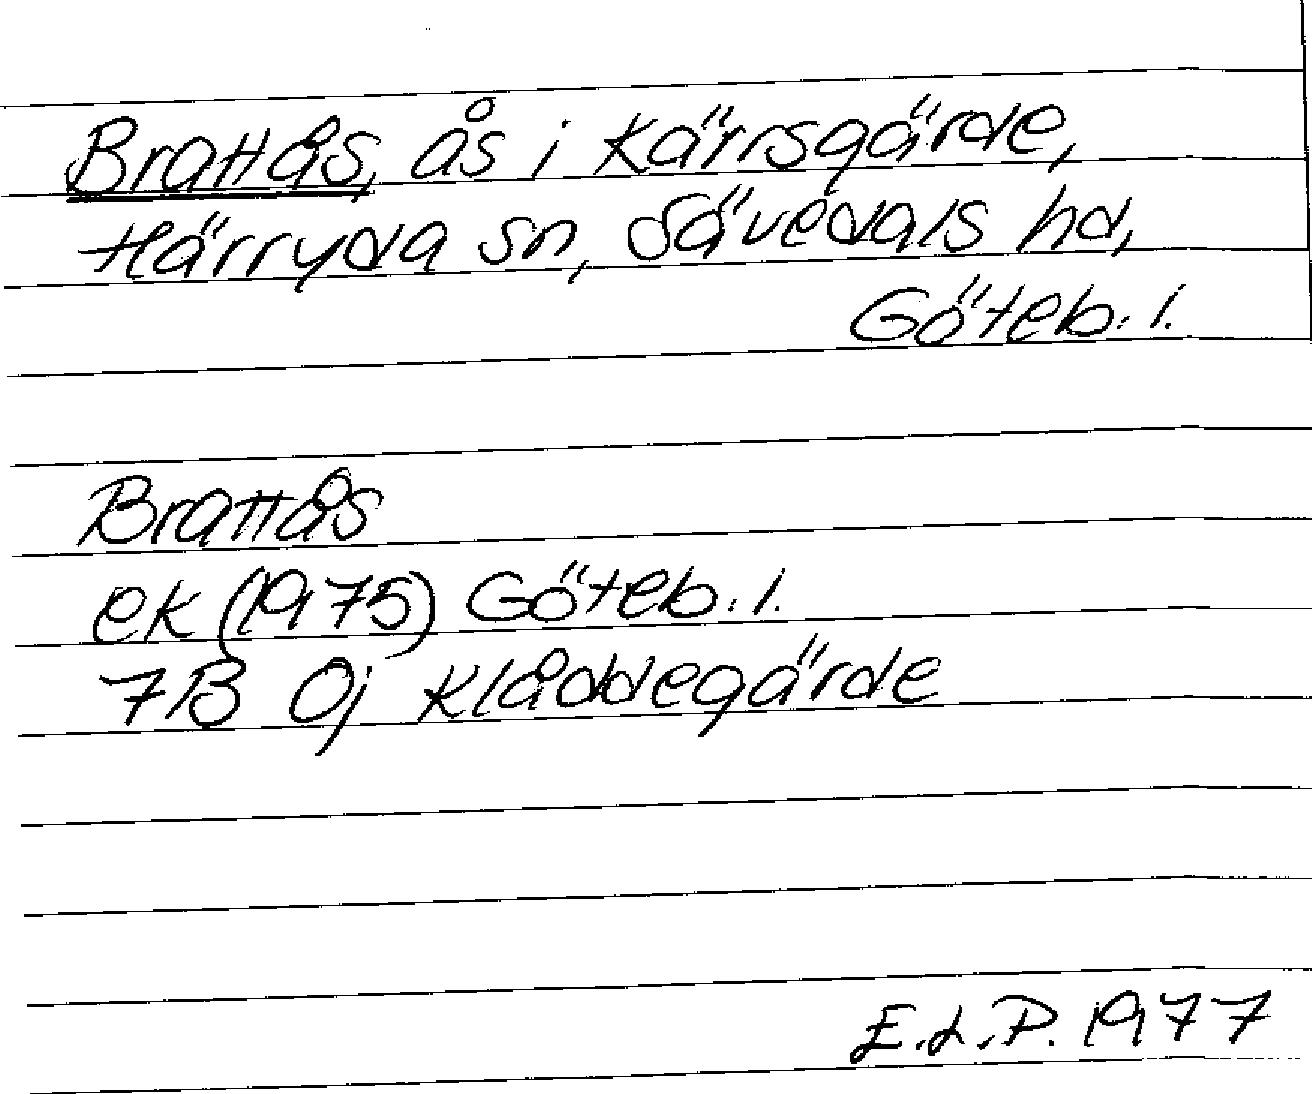 Brattås, ås i Kärrsgärde,
Härryda sn, Sävedals hd,
Göteb. l.
Brattås
ek (1975) Göteb. l.
7B 0j Klåddegärde
E.L.P. 1977